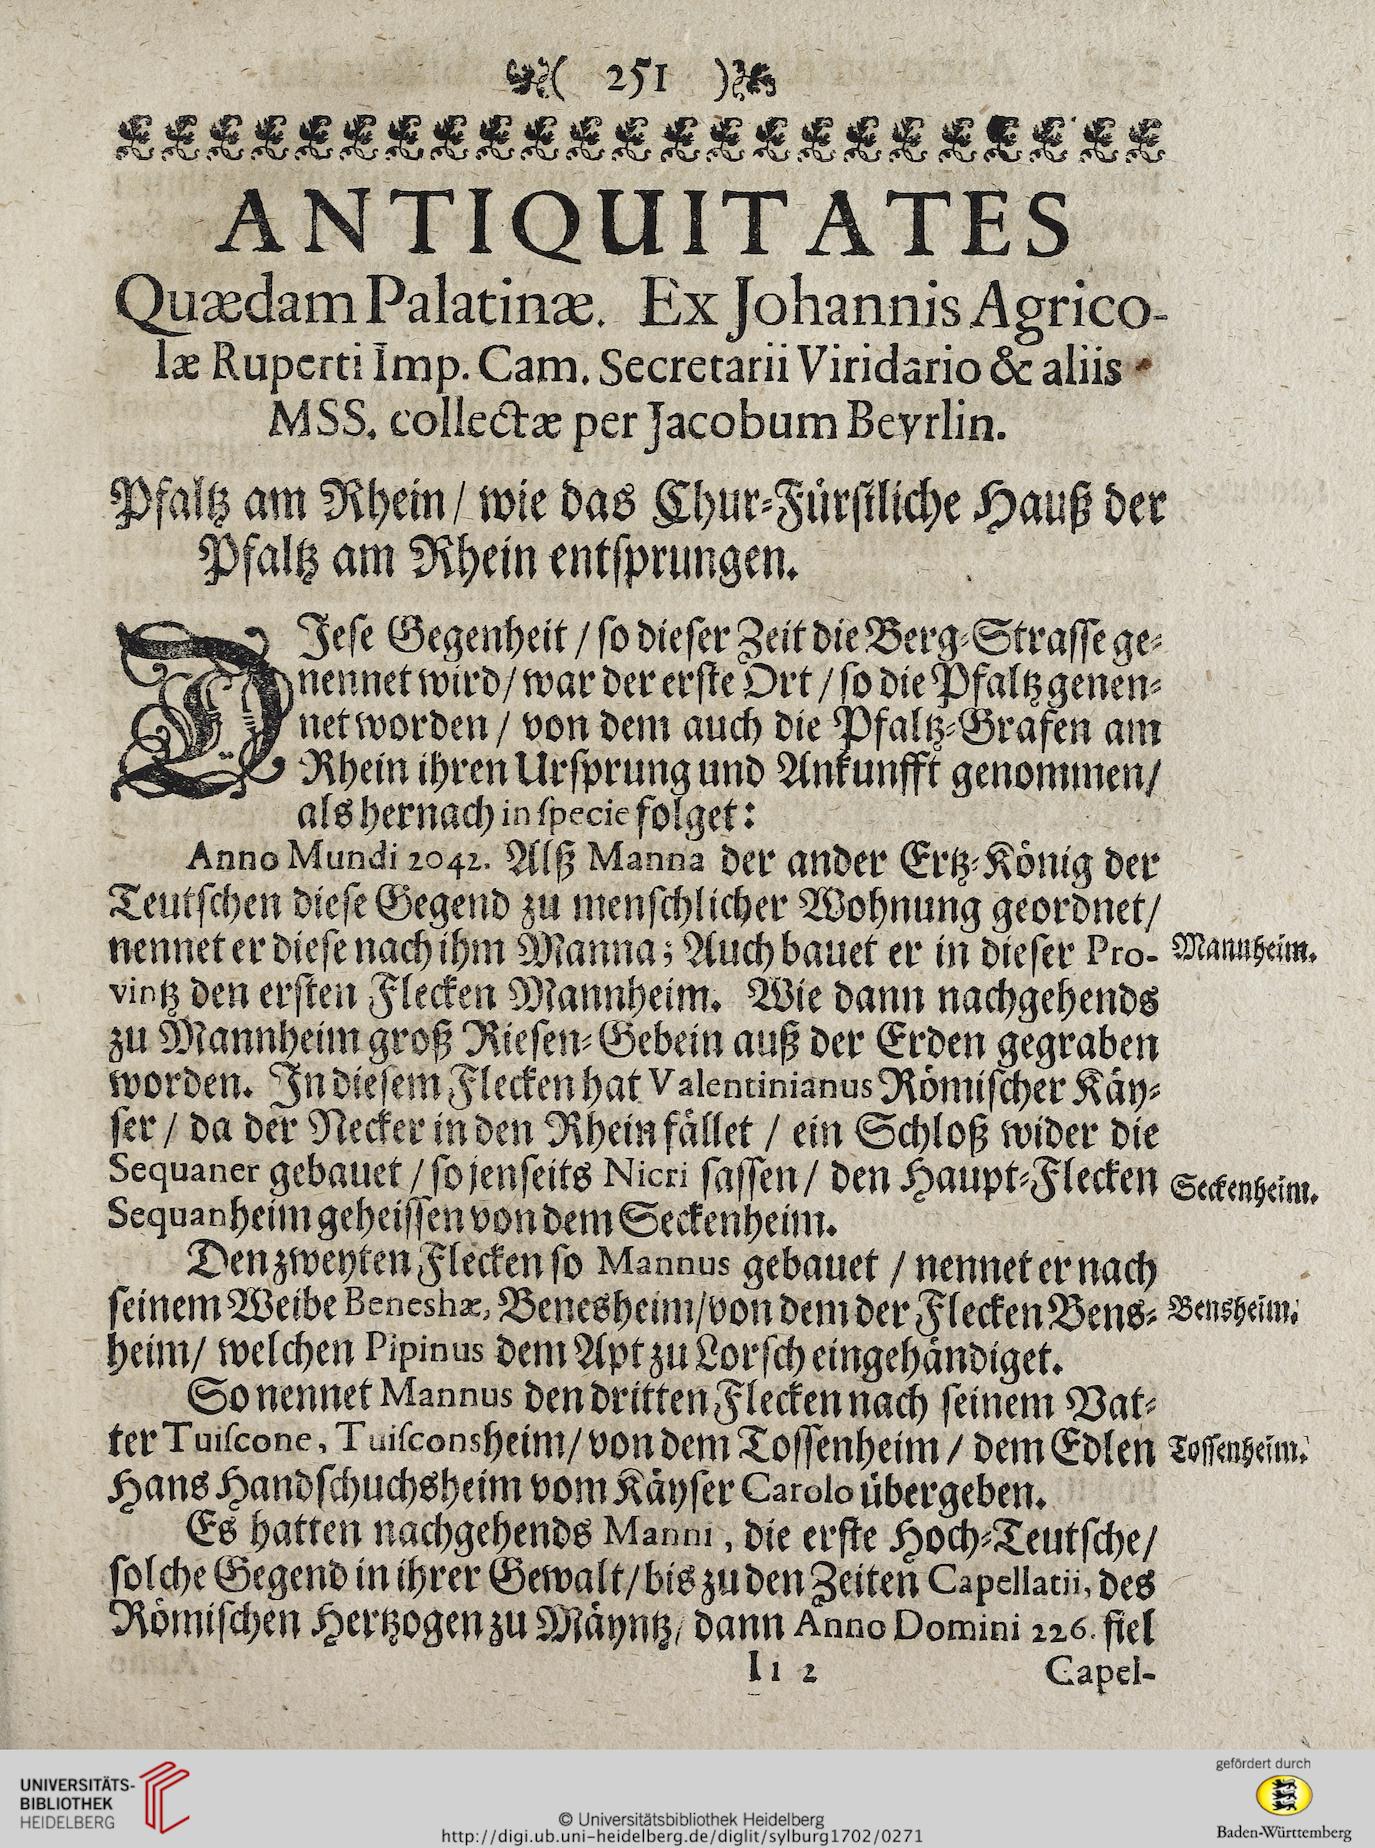 ( 251 )
ANTIQUITATES
Quædam Palatinæ. Ex Johannis Agrico-
læ Ruperti Imp. Cam. Secretarii Viridario & aliis
MSS. collectæ per Jacobum Beyrlin.
Pfaltz am Rhein / wie das Chur-Fürstliche Hauß der
Pfaltz am Rhein entsprungen.
DIese Gegenheit / so dieser Zeit die Berg-Strasse ge-
nennet wird / war der erste Ort / so die Pfaltz genen-
net worden / von dem auch die Pfaltz-Grafen am
Rhein ihren Ursprung und Ankunfft genommen /
als hernach in specie folget:
Anno Mundi 2042. Alß Manna der ander Ertz-König der
Teutschen diese Gegend zu menschlicher Wohnung geordnet /
nennet er diese nach ihm Manna; Auch bauet er in dieser Pro- Mannheim.
vintz den ersten Flecken Mannheim. Wie dann nachgehends
zu Mannheim groß Riesen-Gebein auß der Erden gegraben
worden. In diesem Flecken hat Valentinianus Römischer Käy-
ser / da der Necker in den Rhein fället / ein Schloß wider die
Sequaner gebauet / so jenseits Nicri sassen / den Haupt-Flecken Seckenheim.
Sequanheim geheissen von dem Seckenheim.
Den zweyten Flecken so Mannus gebauet / nennet er nach
seinem Weibe Beneshæ, Benesheim / von dem der Flecken Bens- Bensheim.
heim / welchen Pipinus dem Apt zu Lorsch eingehändiget.
So nennet Mannus den dritten Flecken nach seinem Vat-
ter Tuiscone, Tuisconsheim / von dem Tossenheim / dem Edlen Tossenheim.
Hans Handschuchsheim vom Käyser Carolo übergeben.
Es hatten nachgehends Manni, die erste Hoch-Teutsche /
solche Gegend in ihrer Gewalt / bis zu den Zeiten Capellatii, des
Römischen Hertzogen zu Mäyntz / dann Anno Domini 226. fiel
Ii 2 Capel-
UNIVERSITÄTS-
BIBLIOTHEK
HEIDELBERG
© Universitätsbibliothek Heidelberg
http://digi.ub.uni-heidelberg.de/diglit/sylburg1702/0271
gefördert durch
Baden-Württemberg